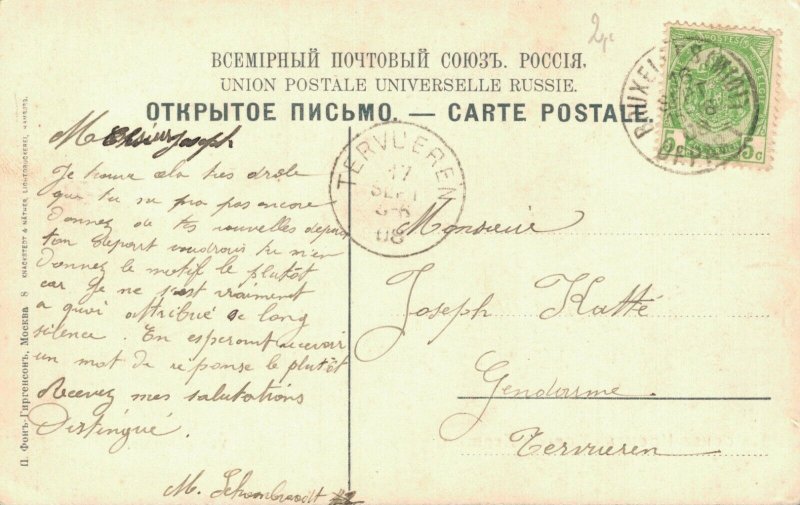 2
ВСЕМІРНЫЙ ПОЧТОВЫЙ СОЮЗЪ. РОССІЯ.
UNION POSTALE UNIVERSELLE RUSSIE.
ОТКРЫТОЕ ПИСЬМО. — CARTE POSTALE.
BRUXELLES
DEPART
5c 5c
TERVUEREN
17
SEPT
08
Monsieur Joseph
Je trouve cela très drole
que tu ne m'a pas encore
donnez de tes nouvelles depuis
ton départ voudrais tu m'en
donnez le motif le plutôt
car Je ne sait vraiment
a quoi attribué ce long
silence. En esperant recevoir
un mot de réponse le plutôt
Recevez mes salutations
Distingué.
M.
Monsieur
Joseph Katté
Gendarme
Tervueren
П. Фонъ-Гиргенсонъ, Москва 8 KNACKSTEDT & NÄTHER, LICHTDRUCKEREI, HAMBURG.